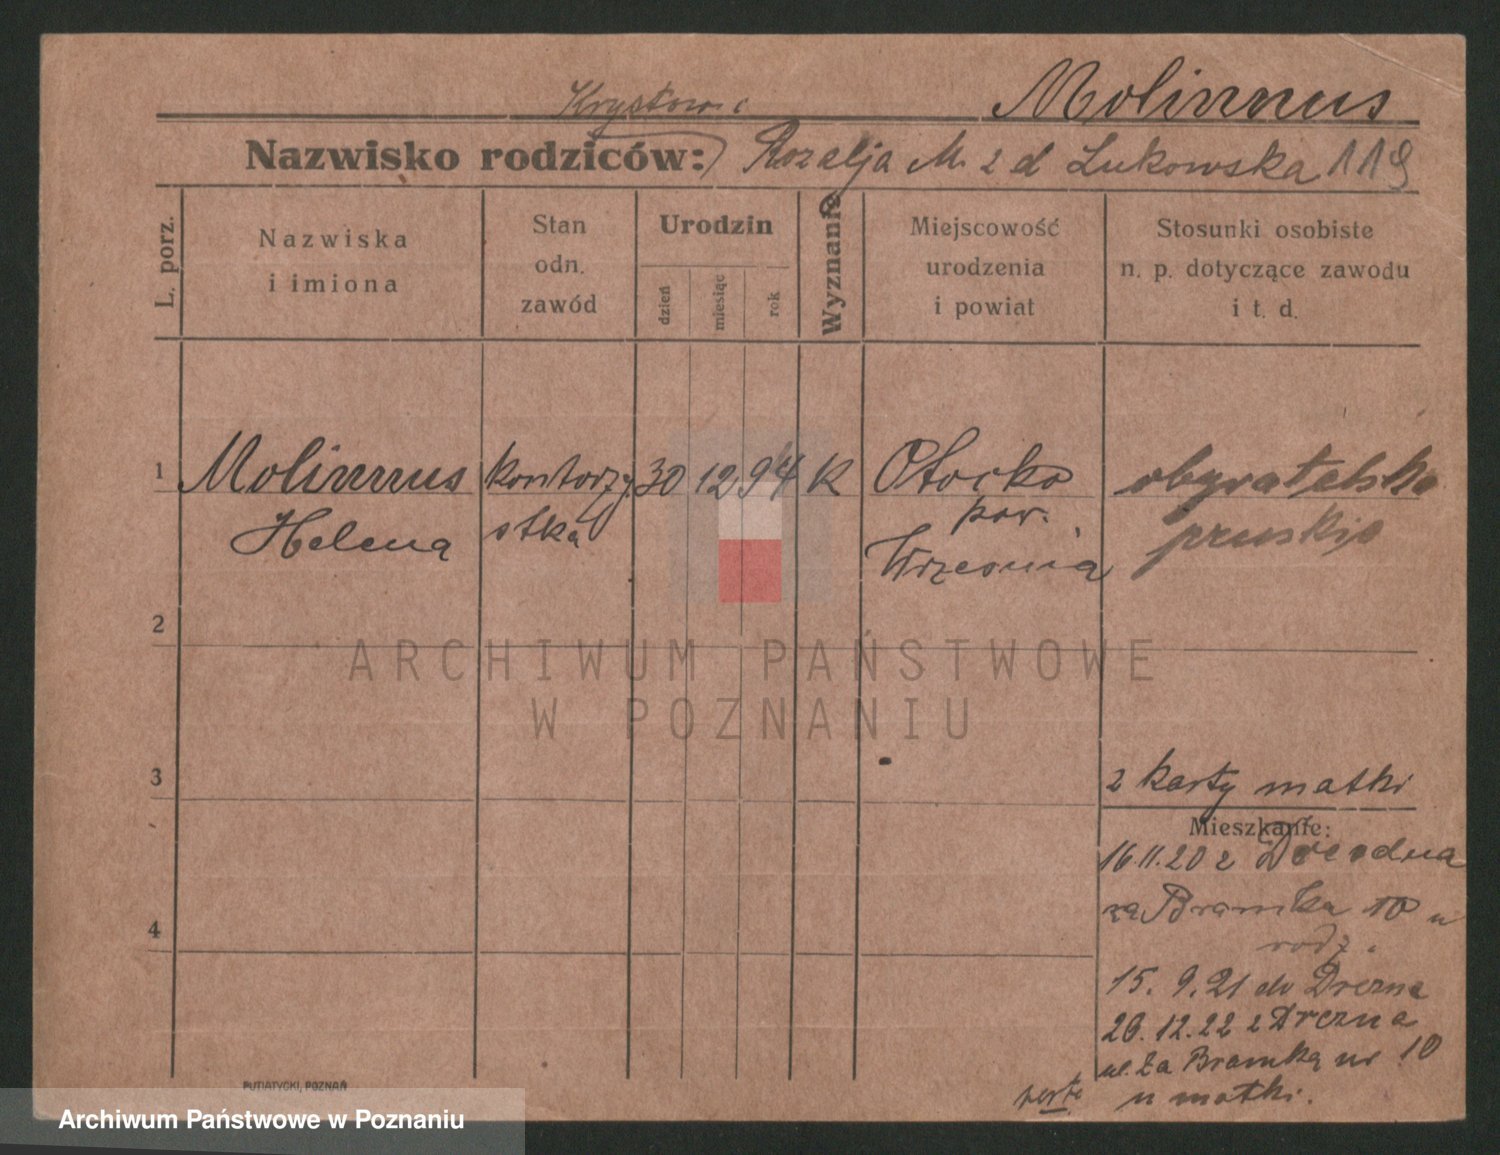 Molinnus
Nazwisko rodziców: Rozalja M. z d Łukowska 119
L. porz.
Nazwiska
i imiona
Stan
odn.
zawód
Urodzin
dzień
miesiąc
rok
Wyznanie
Miejscowość
urodzenia
i powiat
Stosunki osobiste
n. p. dotyczące zawodu
i t. d.
1 Molinnus kontorzy 30 12 94 K Otocko
Helena stka pow.
Września
pruskie
2
3
z karty matki
Mieszkanie:
16.11.20 z Drezdna
za Bramka 10 u
rodz.
4
15. 9. 21 do Drezna
26.12.22 z Drezna
ul. za Bramką nr 10
u matki.
verte
PUTIATYCKI, POZNAŃ
ARCHIWUM PAŃSTWOWE
W POZNANIU
Archiwum Państwowe w Poznaniu